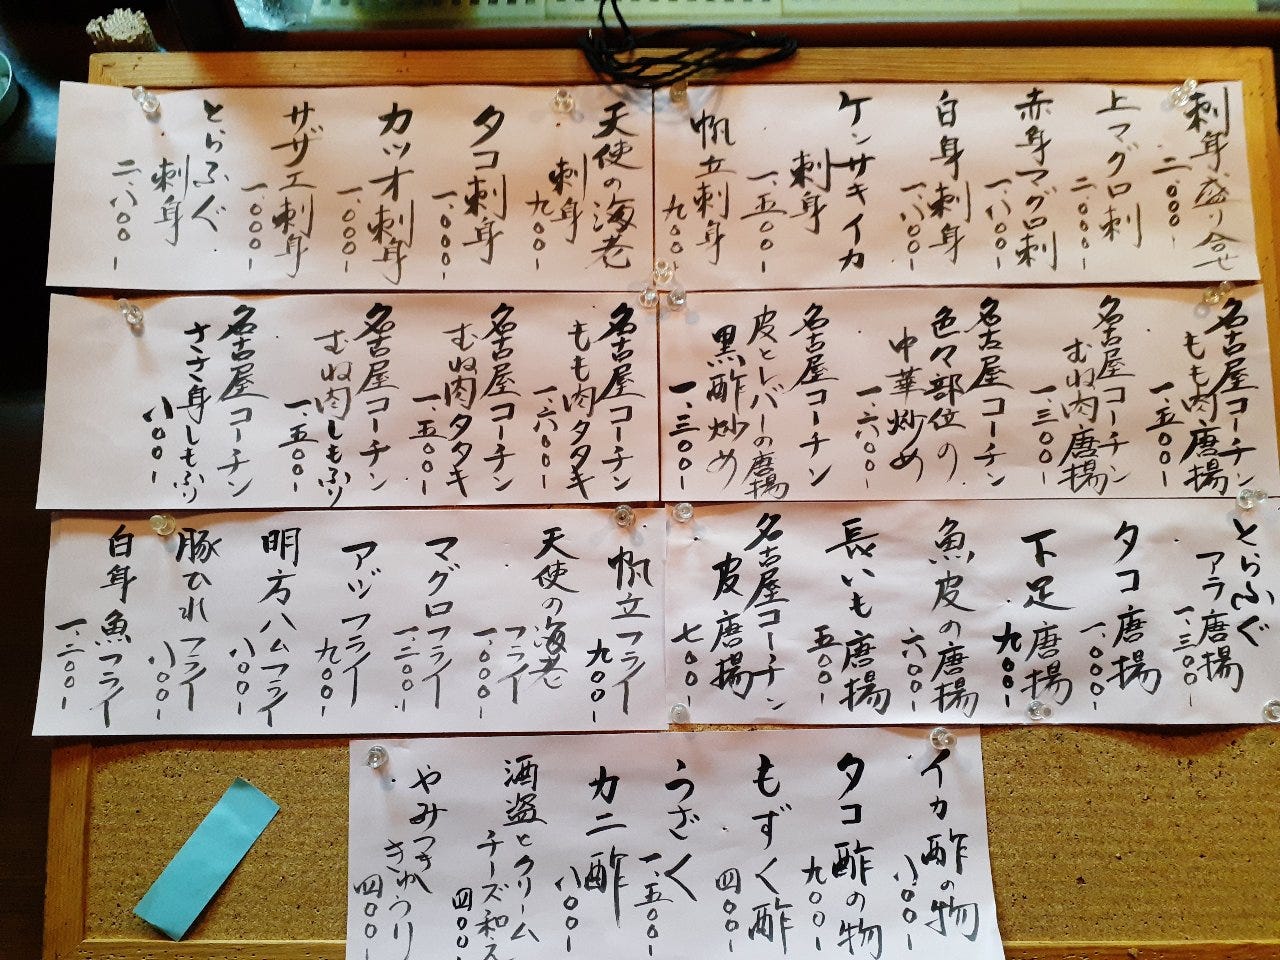 刺身盛り合せ
二、000-
上マグロ刺
二、000-
赤身マグロ刺
一、八00-
白身刺身
一、八00-
ケンサキイカ
刺身
一、五00-
帆立刺身
九00-
天使の海老
刺身
九00-
タコ刺身
一、000-
カツオ刺身
一、000-
サザエ刺身
一、000-
とらふぐ
刺身
二、八00-
名古屋コーチン
もも肉唐揚
一、五00-
名古屋コーチン
むね肉唐揚
一、三00-
名古屋コーチン
色々部位の
中華炒め
一、六00-
名古屋コーチン
皮とレバーの唐揚
黒酢炒め
一、三00-
名古屋コーチン
もも肉タタキ
一、六00-
名古屋コーチン
むね肉タタキ
一、五00-
名古屋コーチン
むね肉しもふり
一、五00-
名古屋コーチン
ささ身しもふり
八00-
とらふぐ
アラ唐揚
一、三00-
タコ唐揚
一、000-
下足唐揚
九00-
魚皮の唐揚
六00-
長いも唐揚
五00-
名古屋コーチン
皮唐揚
七00-
帆立フライ
九00-
天使の海老
フライ
一、000-
マグロフライ
一、二00-
アジフライ
九00-
明方ハムフライ
八00-
豚ひれフライ
八00-
白身魚フライ
一、二00-
イカ酢の物
八00-
タコ酢の物
九00-
もずく酢
四00-
うざく
一、五00-
カニ酢
八00-
酒盗とクリーム
チーズ和え
四00-
やみつき
きゅうり
四00-